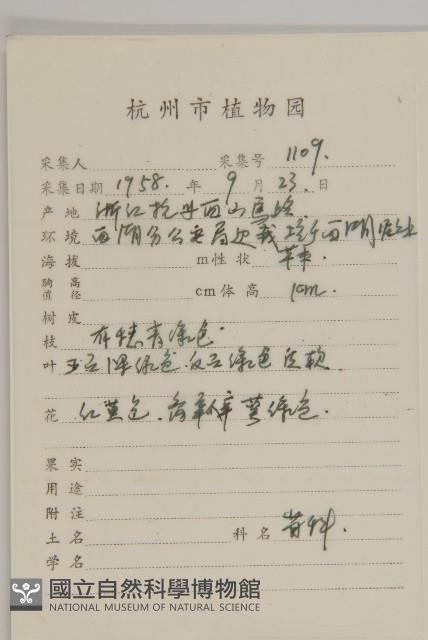 杭州市植物园
采集人 采集号 1109.
采集日期 1958. 年 9 月 23. 日
产地 浙江杭州西山馬路
环境 西湖分公安局边
海拔 m性状 草本.
胸高直径 cm体高 1cm.
树皮
枝 有棱青绿色.
叶 正面深绿色.反面绿色
花 红黄色. 萼绿色.
果实
用途
附注
土名 科名
学名
國立自然科學博物館
NATIONAL MUSEUM OF NATURAL SCIENCE